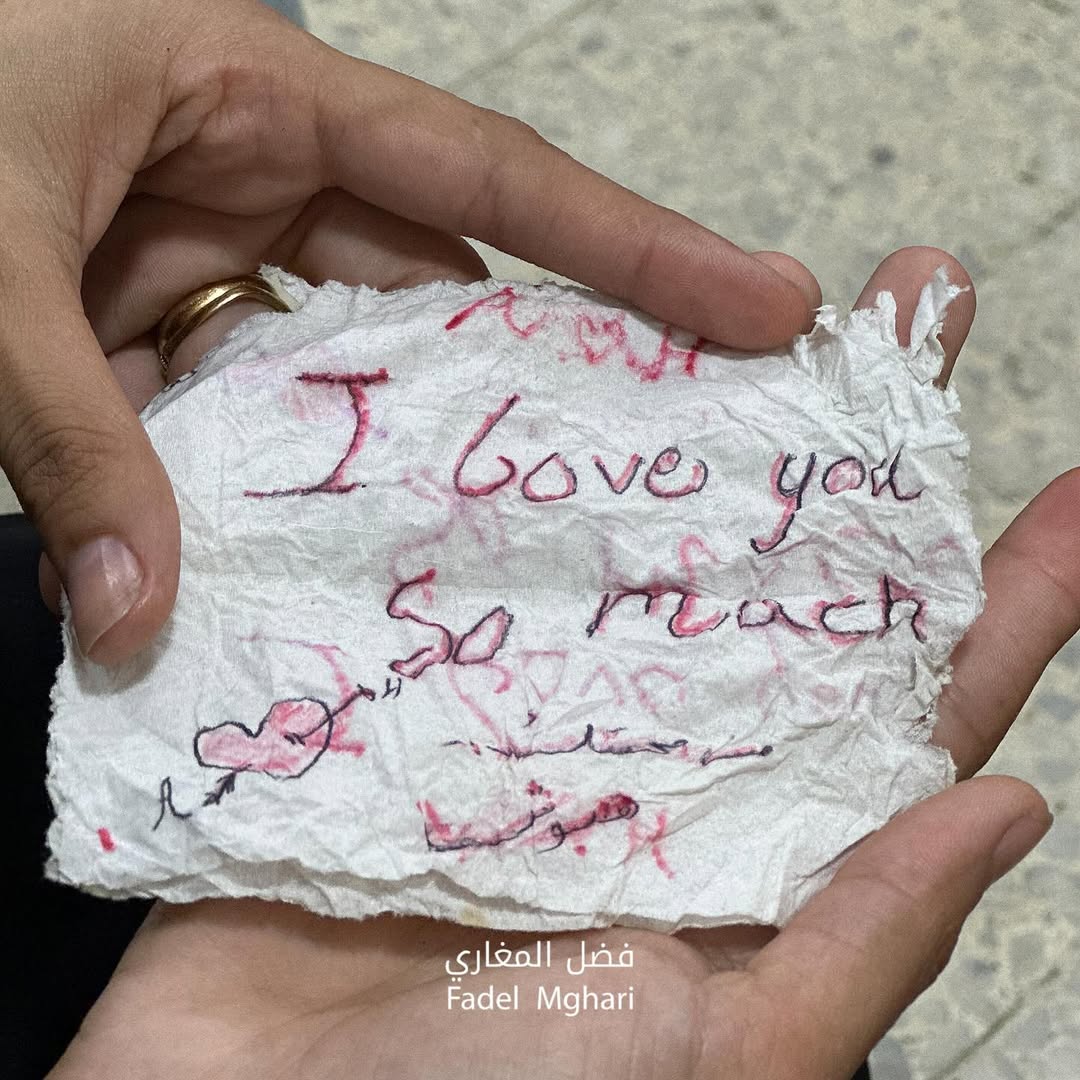 A ♡ H
I Love you
So much
H
A
فضل المغاري
Fadel Mghari